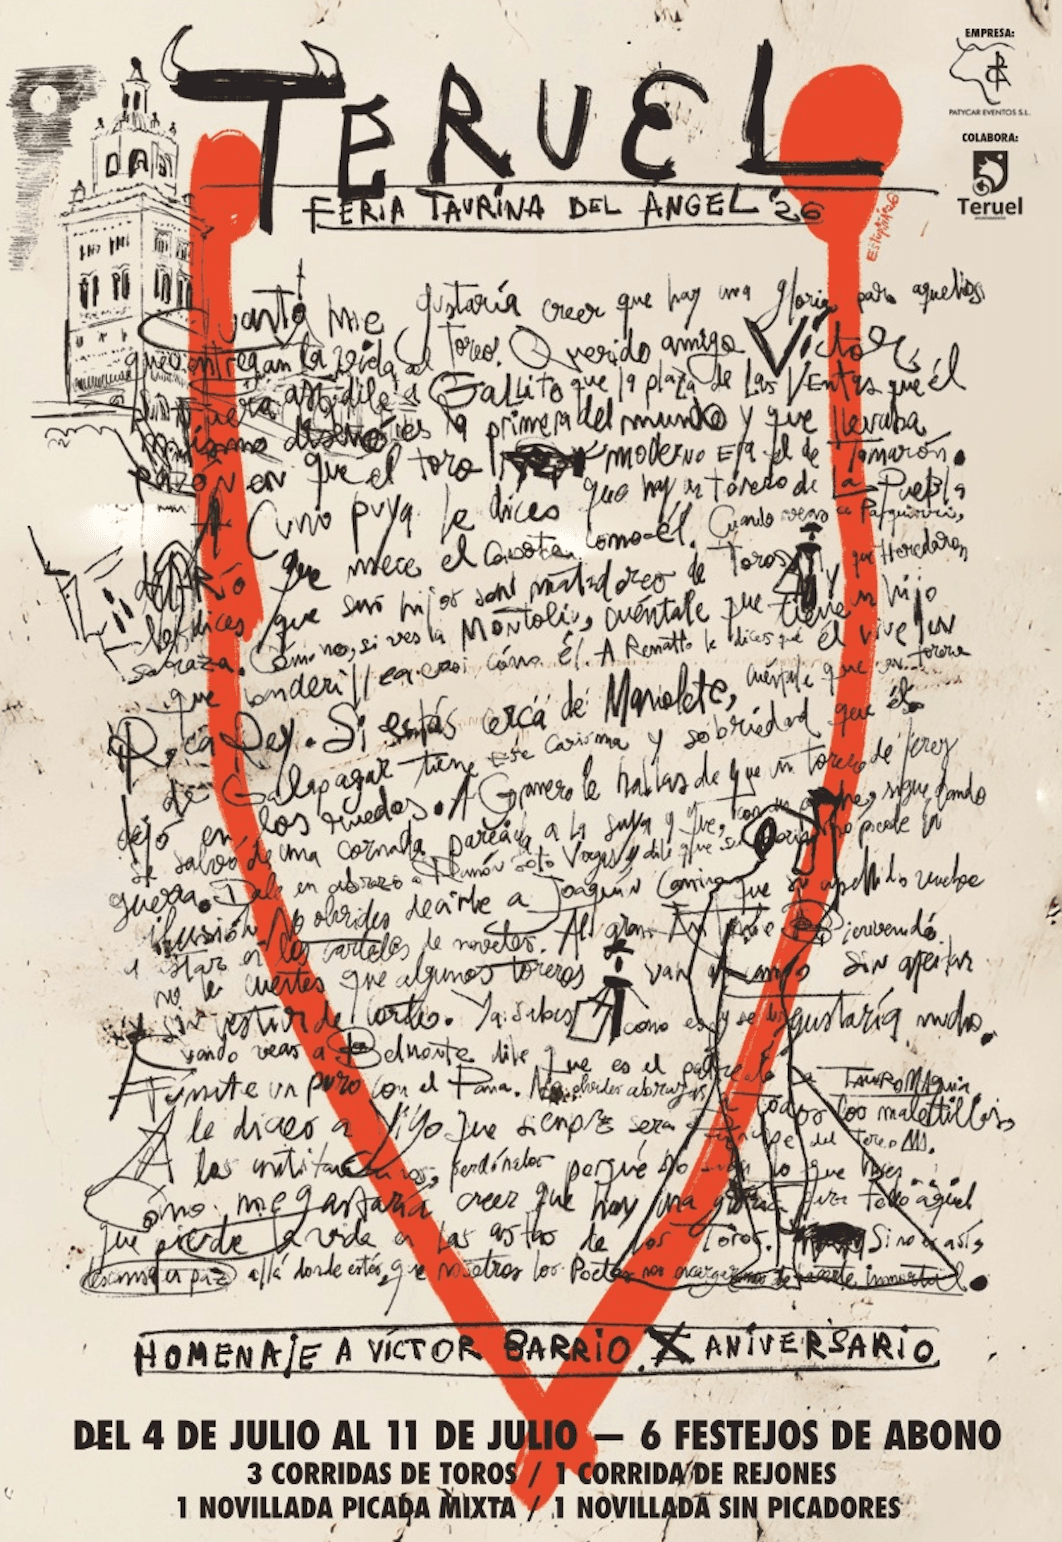 TERUEL
FERIA TAURINA DEL ANGEL '26
EMPRESA:
PATYCAR EVENTOS S.L.
COLABORA:
Teruel
Estupiñá 26
Cuanto me gustaría creer que hay una gloria para aquellos
que entregan la vida al Toreo. Querido amigo Víctor,
dile a Gallito que la plaza de Las Ventas que él
mismo diseñó es la primera del mundo y que llevaba
razón en que el toro moderno era el de Tamarón.
A Curro Puya le dices que hay un torero de La Puebla
que mece el capote como él. Cuando veas a Paquirri,
le dices que sus hijos son matadores de Toros y que Heredaron
su raza. Como no, si ves a Montoliu, cuéntale que tiene un hijo
que banderillea casi cómo él. A Renatto le dices que él vive en
Roca Rey. Si estás cerca de Manolete, cuéntale que un torero
de Galapagar tiene ese Carisma y sobriedad que él
dejó en los ruedos. A Granero le hablas de que un torero de Jerez
se salvó de una cornada parecida a la suya y que, sigue dando
guerra. Dale un abrazo a Ramón Soto Vargas y dile que su
ilusión No olvides decirle a Joaquín Camino que su apellido vuelve
a estar en los carteles de noveles. Al gran Antonio Bienvenida
no le cuentes que algunos toreros van al campo sin apretar
sin vestir de corto. Ya sabes como es y se disgustaría mucho.
Cuando veas a Belmonte dile que es el padre de la TAUROMAQUIA
Fúmate un puro con el Pana. No olvides abrazar a Todos los maletillas
A le dices a Yiyo que siempre será Príncipe del Toreo
A los antitaurinos, perdónalos porque no saben lo que dicen
Cómo me gustaría creer que hay una gloria para todo aquel
que pierde la vida en las astas de los Toros. Si no es así,
descansa en paz allá donde estés, que nosotros los Poetas nos encargaremos de hacerte inmortal.
HOMENAJE A VÍCTOR BARRIO. X ANIVERSARIO
DEL 4 DE JULIO AL 11 DE JULIO — 6 FESTEJOS DE ABONO
3 CORRIDAS DE TOROS / 1 CORRIDA DE REJONES
1 NOVILLADA PICADA MIXTA / 1 NOVILLADA SIN PICADORES